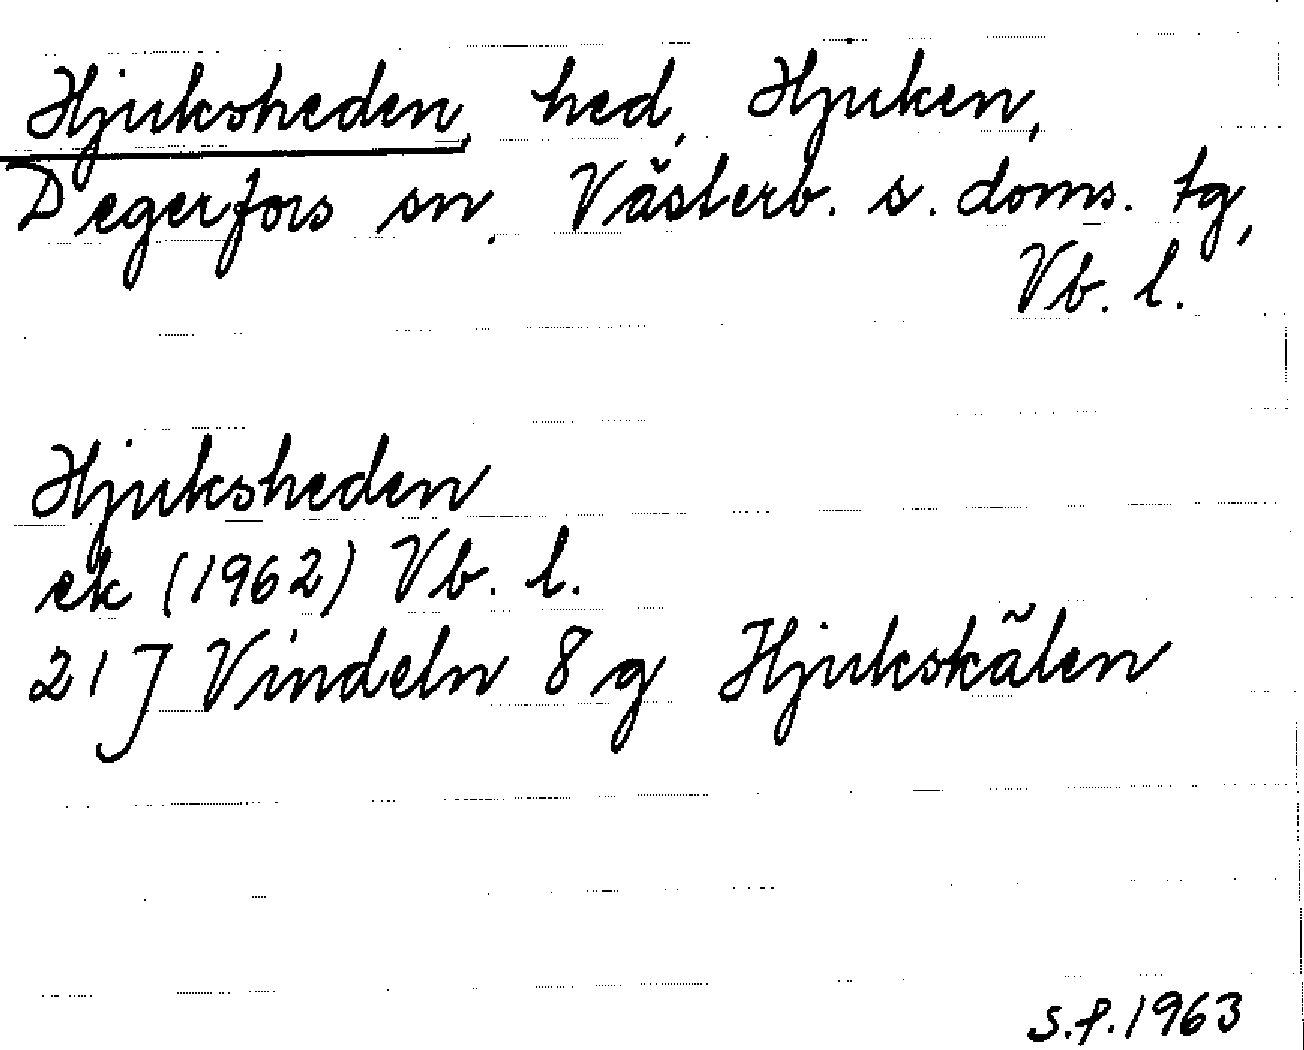 Hjuksheden, hed, Hjuken,
Degerfors sn, Västerb. s. doms. tg,
Vb. l.
Hjuksheden
ek (1962) Vb. l.
21J Vindeln 8 g Hjukskålen
s.f. 1963